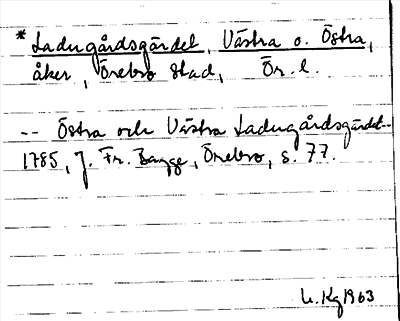 * Ladugårdsgärdet, Västra o. Östra,
åker, Örebro stad, Ör. l.
-- Östra och Västra Ladugårdsgärdet--
1785, J. Fr. Bagge, Örebro, s. 77.
L. Kg 1963